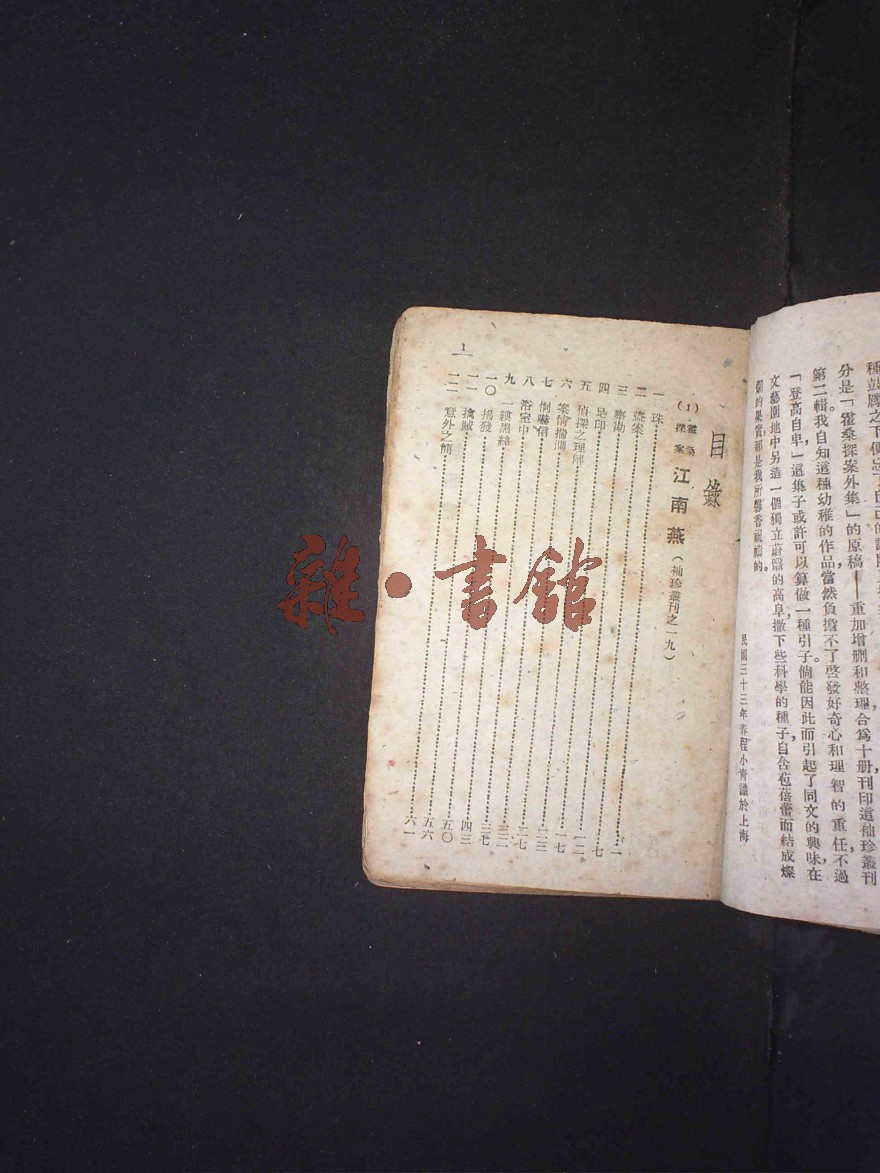 分是「霍桑探案外集」的原稿——重加增刪和整理，合爲十册，刊印這袖珍叢刊
第二輯。我自知這種幼稚的作品當然負擔不了啓發好奇心和理智的重任，不過
「登高自卑」，這集子或許可以算做一種引子。倘能因此而引起了同文的興味，在
文藝園地中另造一個獨立蔚翳的高阜，撒下些科學的種子，自含苞蓓蕾而結成燦
爛的果實，那是我所馨香祝禱的。
民國三十三年春程小青識於上海
目錄
（1）霍桑探案 江南燕（袖珍叢刊之一九）
一 珠
二 盜案 一
三 察勘 七
四 足印 一二
五 偵探之理解 一七
六 案情揣測 二三
七 恫嚇信 二七
八 浴室中 三二
九 一縷黑絲 三七
一〇 揭發 四三
一一 擒賊 五〇
一二 意外之僨 五六
六一
1
雜·書館